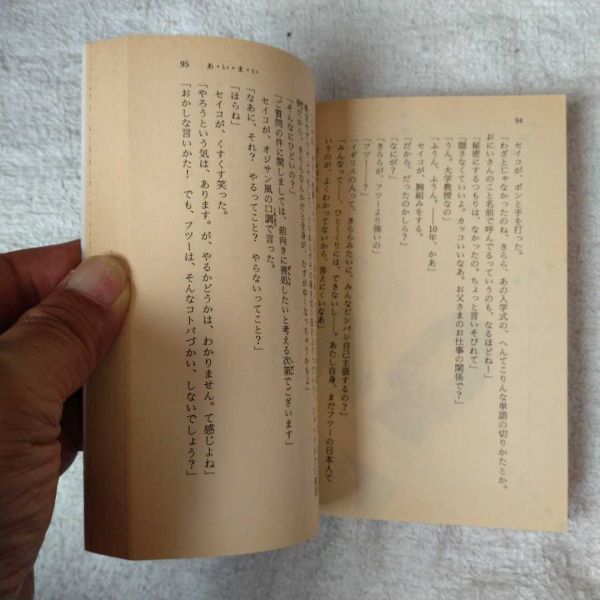 94
セイコが、ポンと手を打った。
「わざとじゃなかったのね、きらら、あの入学式の、へんてこりんな単語の切りかたとか。
おにいさんのこと名前で呼んでるっていうのも、なるほどねー」
「秘密にするつもりは、なかったの。ちょっと言いそびれて」
「隠さなくていいよ。カッコいいなあ。お父さまのお仕事の関係で？」
「うん。大学教授なの」
「ふうん、ふうん。――10年、かあ」
セイコが、腕組みをする。
「だから、だったのかしら？」
「なにが？」
「きららが、フツーより強いの」
「フツー――？」
「イギリスの人って、きららみたいに、みんなビシバシ自己主張するの？」
「みんなって――、ひとくくりには、できないし――。あたし自身、まだフツーの日本人て
いうのが、よくわかってないから、答えにくいなあ」
95
あ・い・ま・い
「そんなにひどいの？」
「ご質問の件に関しましては、前向きに善処したいと考える次第でございます」
セイコが、オジサン風の口調で言った。
「なあに、それ？　やるってこと？　やらないってこと？」
「ほらね」
セイコが、くすくす笑った。
「やろうという気は、あります。が、やるかどうかは、わかりません。て感じよね」
「おかしな言いかた！　でも、フツーは、そんなコトバづかい、しないでしょう？」